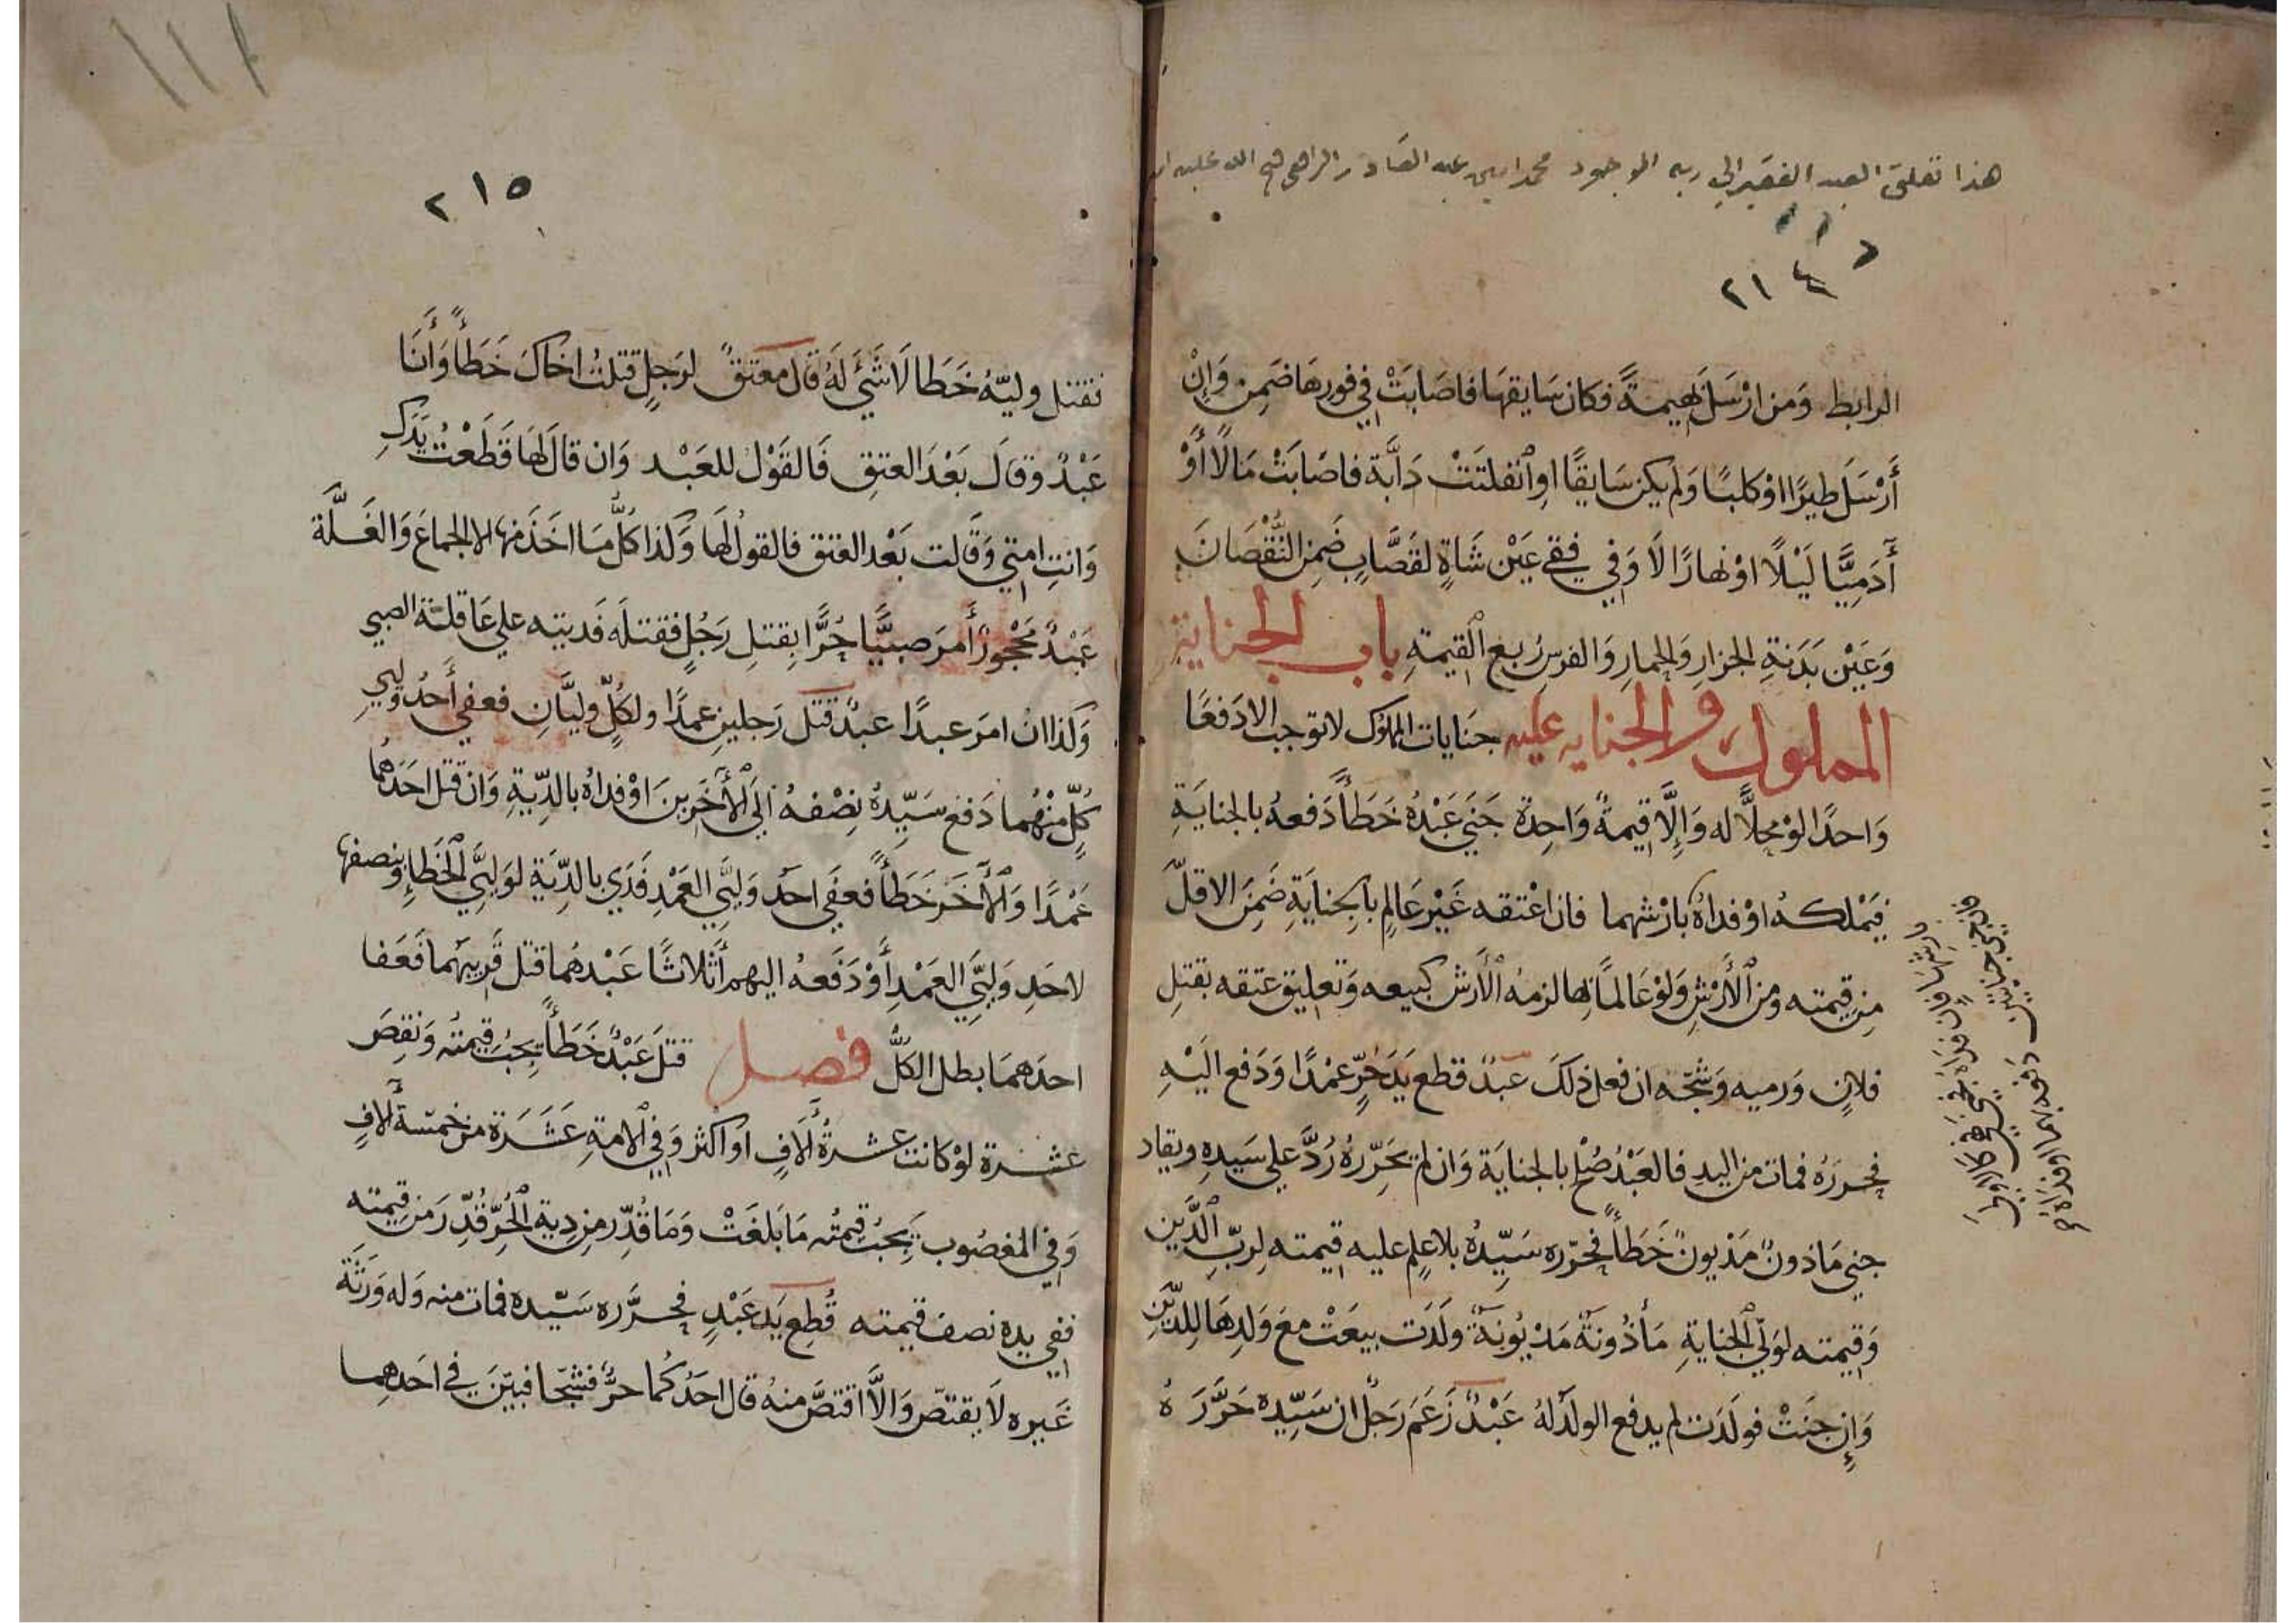 هذا تعلق العبد الفقير الي ربه الموجود محمد امين عبد القادر الرافعي فتح الله عليه
٢١٤
الرابط وَمن ارْسَلَ بَهيمَةً فكان سَايقهَا فاصَابَتْ في فورهَا ضَمِن وَاِنْ
أَرْسَلَ طيرًا اوْ كلبًا وَلم يكن سَايقًا اوِ انفلتَتْ دَابَّة فاصَابَتْ مَالًا أَوْ
آدَمِيًّا لَيْلًا اوْ نهارًا لَا وَفي فقءِ عَيْن شَاةٍ لقَصَّابٍ ضَمِنَ النُّقْصَانَ
وَعَيْن بَدَنةِ الجزارِ وَالحمارِ وَالفرسِ رُبع القيمةِ باب الجناية
المملوك والجنايه عليه جنَايات المملُوك لا توجب الا دَفعًا
وَاحدًا لوْ محلًّا له وَاِلَّا قيمةً وَاحِدة جَنَي عَبْدُهُ خَطَأً دَفعهُ بالجنايَةِ
فيَمْلكهُ اوْ فداهُ بارْشهما فان اعْتقه غَيْر عَالِمٍ بالجِنايَةِ ضَمِنَ الاقلّ
مِن قيمته ومن الأرْشِ وَلوْ عَالمًا بهَا لزمهُ الأَرش كبيعه وَتعليق عتقه بقتلِ
فلانٍ وَرميه وَشجّه ان فعل ذلكَ عبدٌ قطع يَدَ حُرٍّ عمْدًا وَدَفع اليْهِ
فحررَهُ فمات من اليدِ فالعَبْدُ صُلح بالجنايَة وَان لم يحَرِّرهُ رُدَّ علي سَيدِهِ ويقاد
جني مَاذون مَدْيون خَطَأً فحرّره سَيِّدُهُ بلا علم عليه قيمته لِربّ الدَّين
وَقيمته لوَليّ الجنايةِ مَأذُونَةٌ مَدْيُونَةٌ ولَدَت بيعَتْ معَ وَلدِهَا لِلدّيْنِ
وَاِن جنَتْ فولَدَت لم يدفع الولَد لهُ عَبْدٌ زَعَمَ رَجلٌ ان سَيّده حَرَّرَهُ
فان جني جنايتين دَفعه بهما او فداهُ
بارشهما فان فداه فجني فهي كالاولي
٢١٥
فقتل وليّهُ خَطَا لَا شَيْءَ لَهُ قال معتَقٌ لرَجلٍ قتلتُ اخاكَ خَطَأً وَأَنَا
عَبْدٌ وقالَ بَعْدَ العتقِ فَالقَوْل للعَبْد وَان قالَ لهَا قَطَعْتُ يَدَكِ
وَانتِ امتي وَقَالت بَعْد العتق فالقولُ لهَا وَكذا كُلُّ مَا اخَذَ منها الا الجماعَ وَالغَلَّة
عَبْدٌ مَحْجُورٌ أَمرَ صبيًّا حُرًّا بِقتلِ رَجُلٍ فقتلَه فَديته علي عَاقلةِ الصبي
وَكذا ان امرَ عبدًا عبدٌ قتَل رَجلينِ عمدًا ولكُلّ وليَّانِ فعفي أَحدُ وَليي
كُلٍّ منْهُما دَفع سَيّدُهُ نِصْفهُ الَي الأخَرينَ اوْ فداهُ بالدِّيةِ وَان قتل احَدَهُمَا
عَمْدًا وَالأَخَر خَطَأً فعفي احَد وَليَّي العَمْدِ فَدَي بالدِّيَةِ لوَليَّي الخَطَإِ وَنصفها
لاحَدِ وَلييَّ العَمْدِ أَوْ دَفَعهُ اليهم أَثْلاثًا عَبْدهُما قتل قَريبهُما فَعَفا
احدَهمَا بطل الكلُّ فصل قتلَ عَبْدٌ خَطَأً يجبُ قيمتُه وَنقصَ
عشرة لوْ كانت عشرةَ ألَافٍ او اكثر وَفي الامةِ عَشَرَة من خمسة ألافٍ
وَفي المغصُوب يجبُ قيمتُه مَا بَلغَتْ وَمَا قُدّر من دِيةِ الحُرِّ قُدِّرَ من قيمته
ففي يده نصف قيمته قُطع يَد عَبْدٍ فحرَّره سَيّده فمات منه وَله وَرَثَةٌ
غيره لَا يقتصّ وَالَّا اقتصَّ منهُ قال احَدُكُما حرٌّ فشجّا فبيّنَ في احَدهما